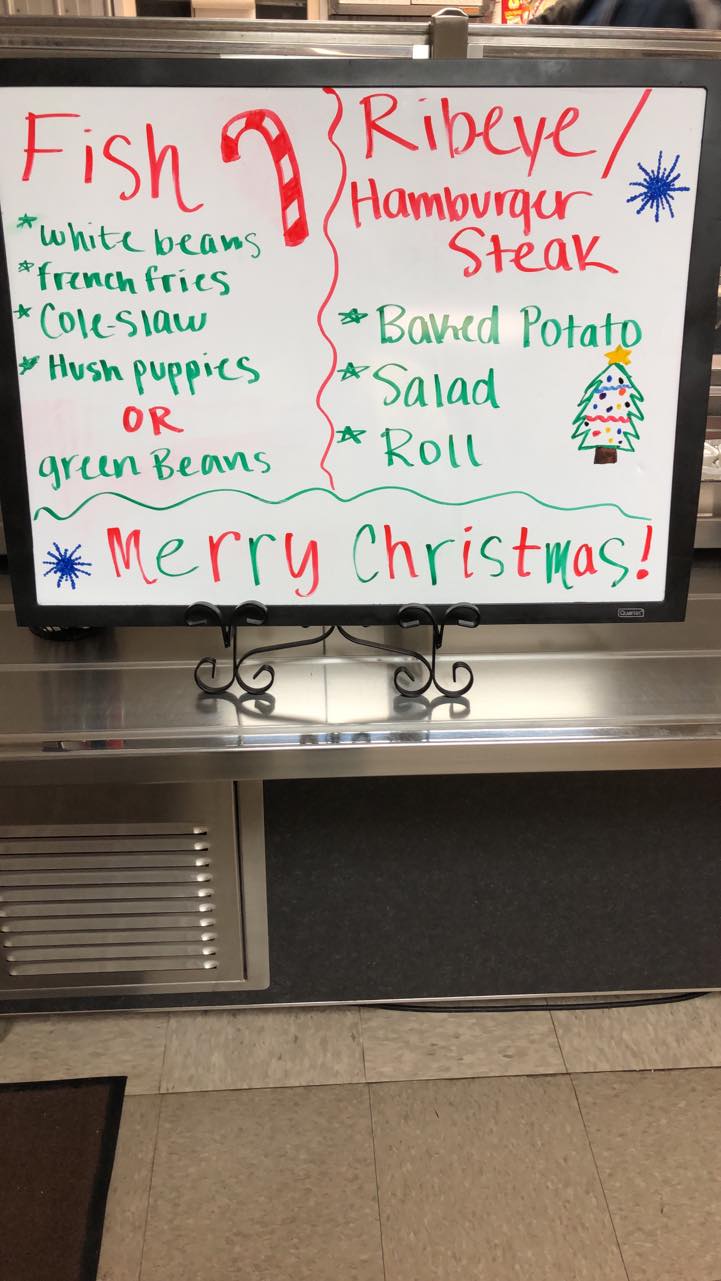 Fish
*white beans
*french fries
*Cole-slaw
*Hush puppies
OR
green Beans
Ribeye/
Hamburger
Steak
*Baked Potato
*Salad
*Roll
Merry Christmas!
Quartet